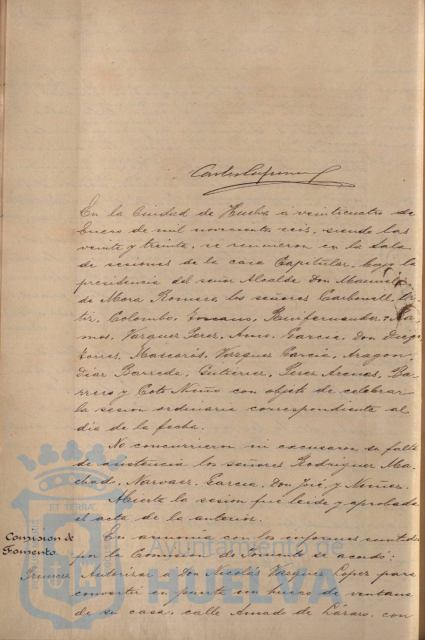 En la Ciudad de Huelva a veinticuatro de
Enero de mil novecientos seis, siendo las
veinte y treinta, se reunieron en la Sala
de sesiones de la casa Capitular, bajo la
presidencia del señor Alcalde Don
de Mora Romero, los señores Carbonell,
Colombo, Toscano,
Vazquez Perez, Garcia, Don Diego
Torres, Mascarós, Vazquez Garcia, Aragon,
Diaz Barreda, Gutierrez, Perez Arenas, Ba
rrera y Coto Niño con objeto de celebrar
la sesion ordinaria correspondiente al
dia de la fecha.
No concurrieron ni excusaron su falta
de asistencia los señores Rodriguez Ma
chado, Narvaez, Garcia, Don José, y Muñez.
Abierta la sesion fué leida y aprobada
el acta de la anterior.
Comision de
Fomento.
En armonia con los informes emitidos
por la Comision de Fomento se acordó:
Primero Autorizar a Don Nicolás Vazquez Lopez para
convertir en puerta un hueco de ventana
de su casa, calle Amado de Lázaro, con
ET TERRA
Ayuntamiento de
HUELVA